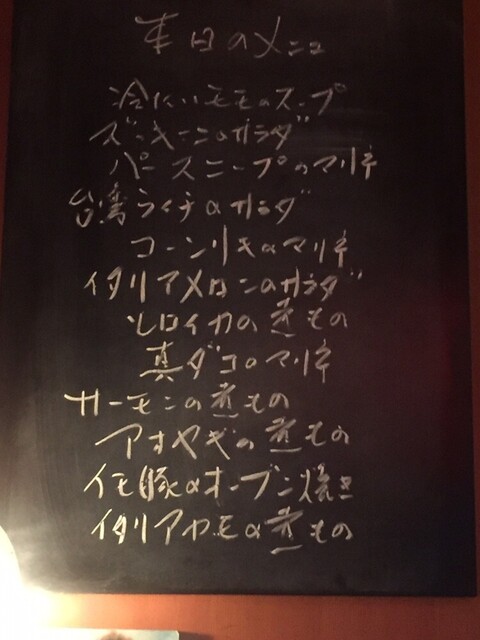 本日のメニュ
冷たいモモのスープ
ズッキーニのサラダ
パースニープのマリネ
台湾ライチのサラダ
コーンリキのマリネ
イタリアメロンのサラダ
シロイカの煮もの
真ダコのマリネ
サーモンの煮もの
アオヤギの煮もの
イモ豚のオーブン焼き
イタリアカモの煮もの